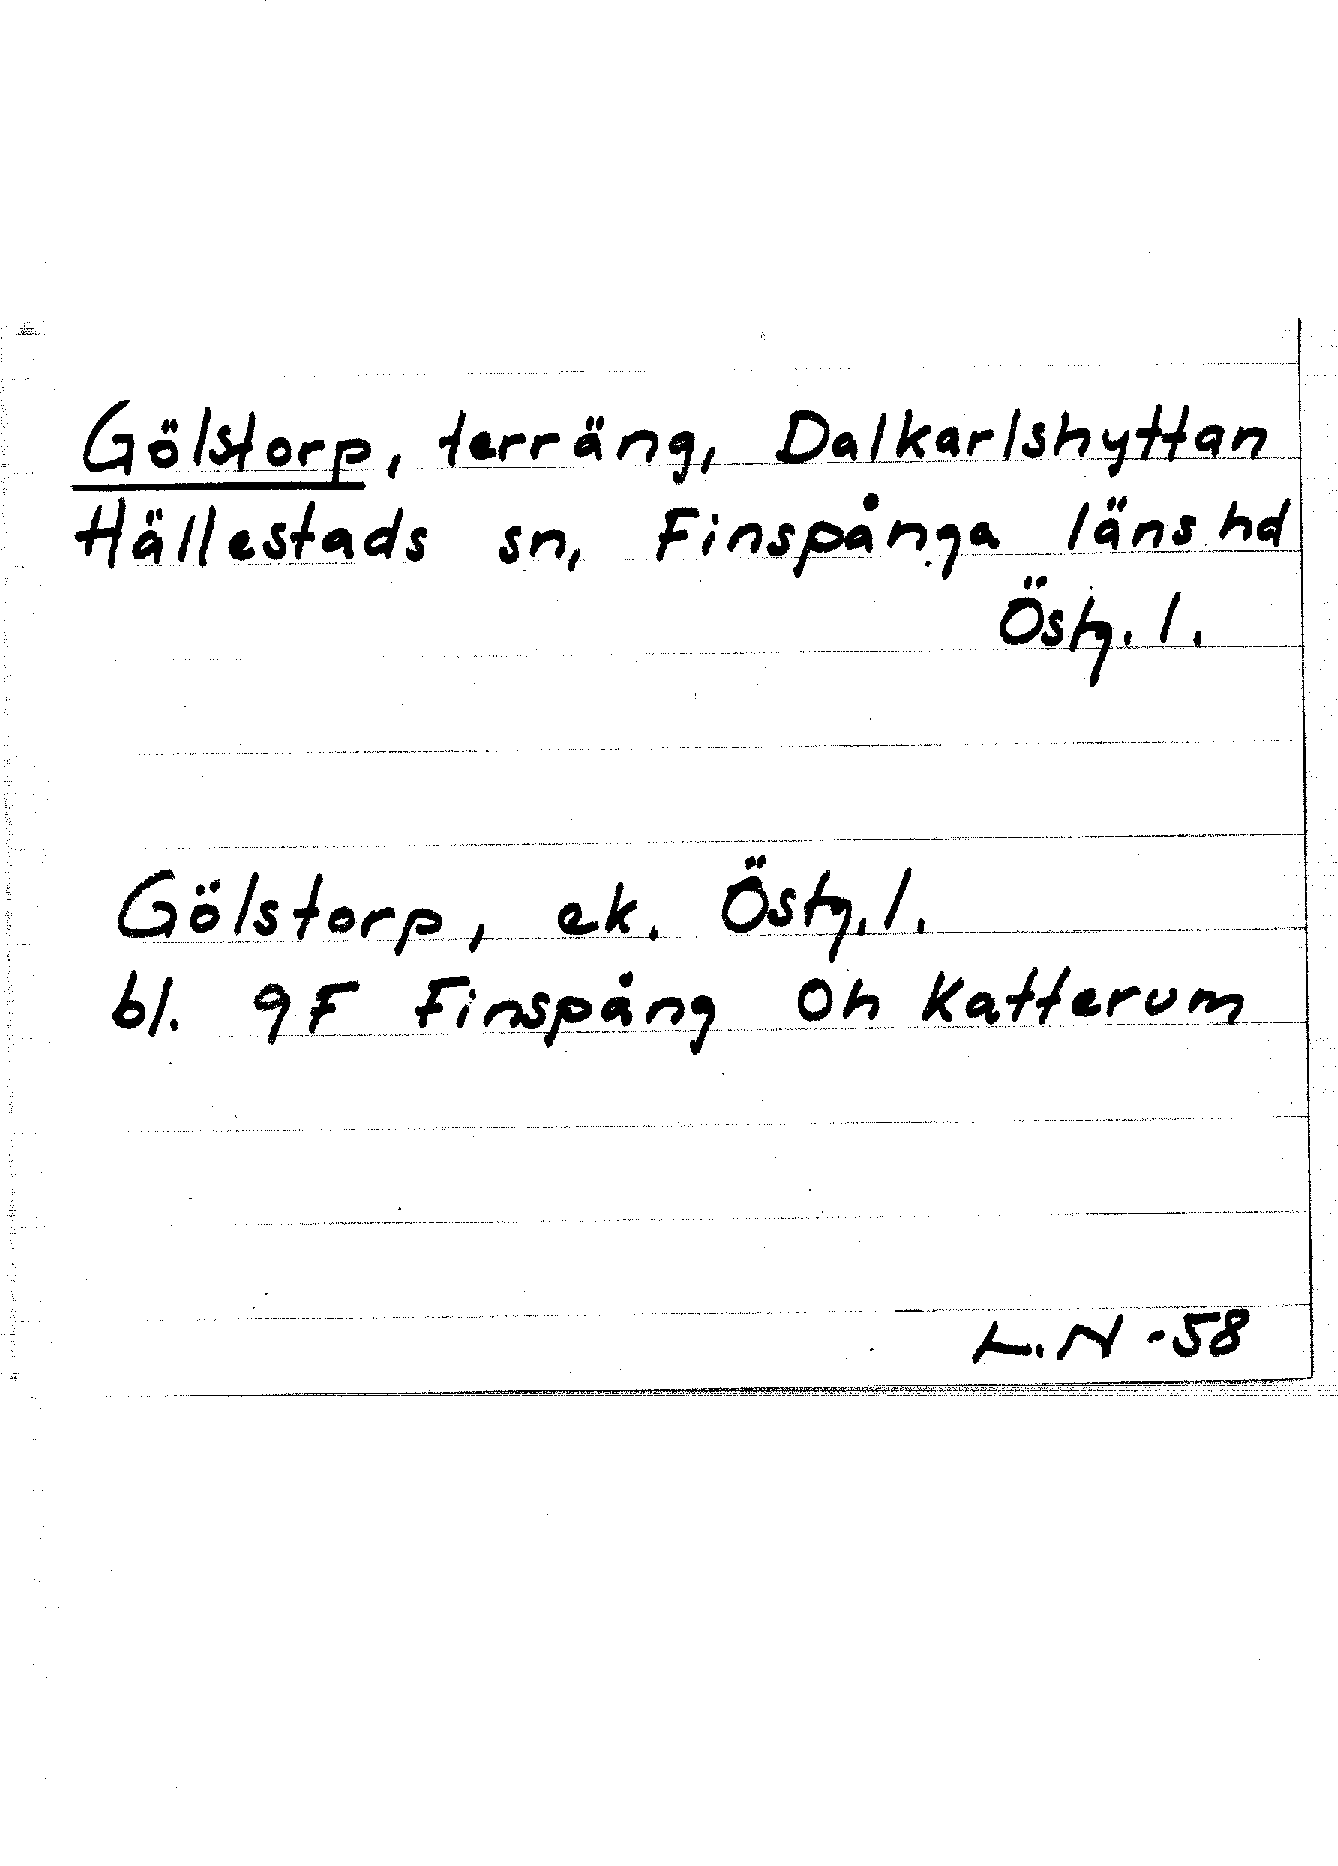 Gölstorp, terräng, Dalkarlshyttan
Hällestads sn, Finspånga läns hd
Östg. l.
Gölstorp, ek. Östg. l.
bl. 9F Finspång 0h Katterum
L.N -58